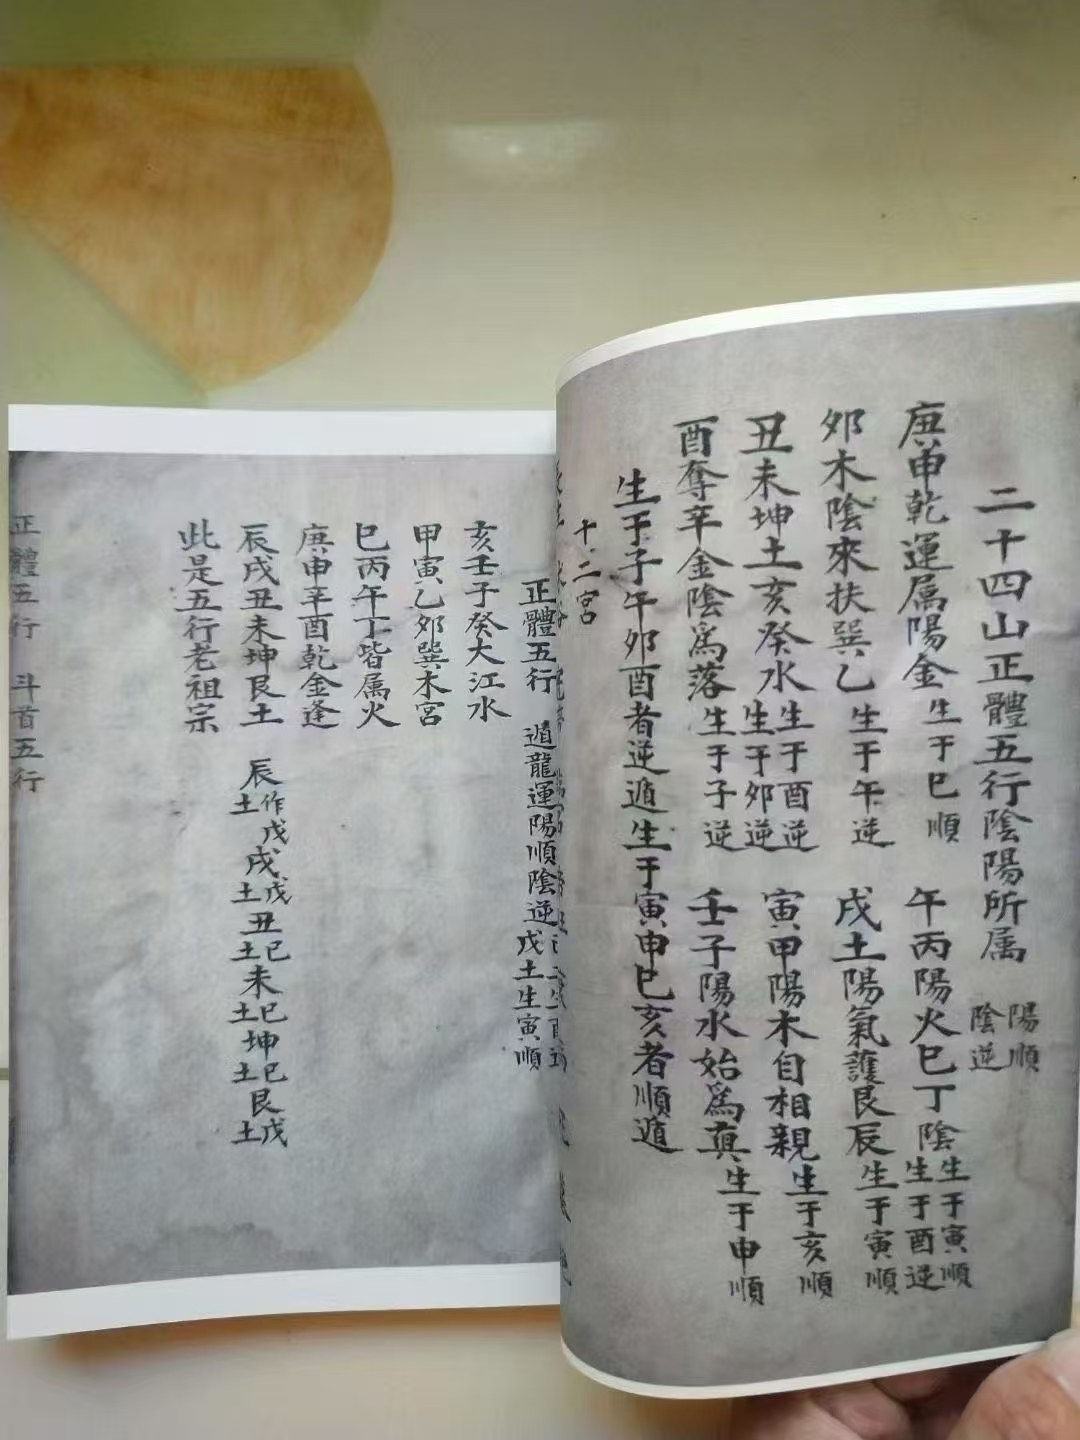 二十四山正體五行陰陽所属 陽順 陰逆
庚申乾運属陽金 生于巳順 午丙陽火巳丁陰 生于寅順 生于酉逆
夘木陰來扶巽乙 生于午逆 戌土陽氣護艮辰 生于寅順
丑未坤土亥癸水 生于酉逆 生于夘逆 寅甲陽木自相親 生于亥順
酉奪辛金陰爲落 生于子逆 壬子陽水始爲真 生于申順
生于子午夘酉者逆遁生于寅申巳亥者順遁
十二宮
正體五行 遁龍運陽順陰逆戊土生寅順
亥壬子癸大江水
甲寅乙夘巽木宮
巳丙午丁皆属火
庚申辛酉乾金逢
辰戌丑未坤艮土 辰作戊土戌戊土丑己土未己土坤己土艮戊土
此是五行老祖宗
正體五行 斗首五行